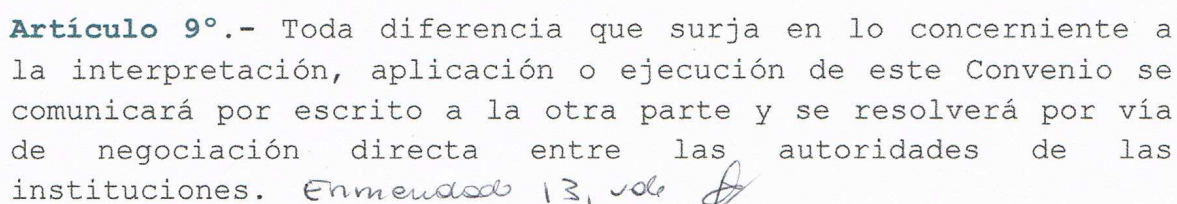 Artículo 9º.- Toda diferencia que surja en lo concerniente a
la interpretación, aplicación o ejecución de este Convenio se
comunicará por escrito a la otra parte y se resolverá por vía
de negociación directa entre las autoridades de las
instituciones. Enmendado 13, vale